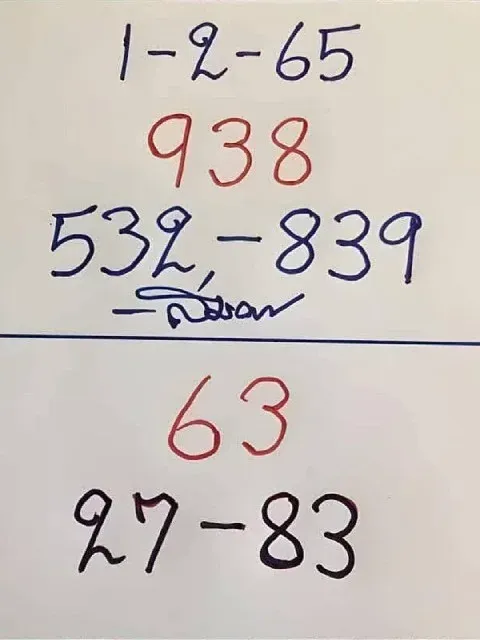 1-2-65
938
532,-839
63
27-83